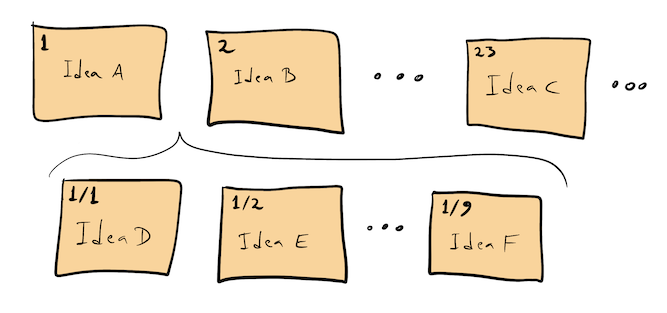 1
Idea A
2
Idea B
...
23
Idea C
...
1/1
Idea D
1/2
Idea E
...
1/9
Idea F